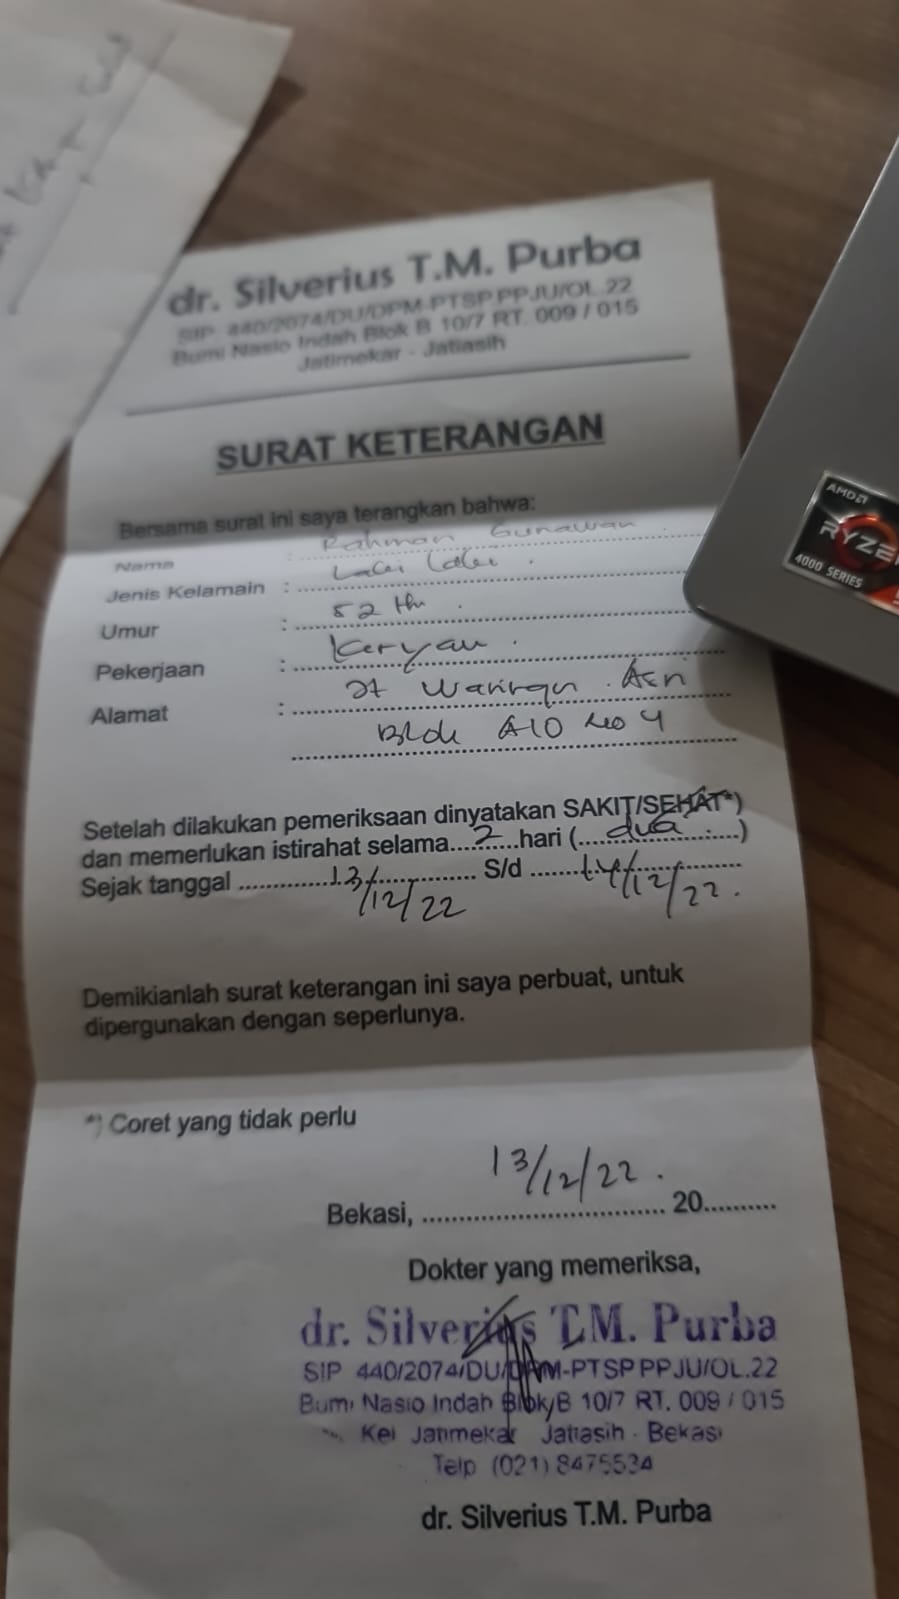 dr. Silverius T.M. Purba
SIP. 440/2074/DU/DPM-PTSP.PPJU/OL.22
Bumi Nasio Indah Blok B 10/7 RT. 009 / 015
Jatimekar - Jatiasih
SURAT KETERANGAN
Bersama surat ini saya terangkan bahwa:
Nama : Rahman Gunawan
Jenis Kelamain : Laki Laki
Umur : 52 th
Pekerjaan : Karyau
Alamat : Jt Waringn Asri
Blok A10 No 4
Setelah dilakukan pemeriksaan dinyatakan SAKIT/SEHAT*)
dan memerlukan istirahat selama 2 hari (dua)
Sejak tanggal 13/12/22 S/d 14/12/22.
Demikianlah surat keterangan ini saya perbuat, untuk
dipergunakan dengan seperlunya.
*) Coret yang tidak perlu
13/12/22.
Bekasi, 20
Dokter yang memeriksa,
dr. Silverius T.M. Purba
SIP 440/2074/DU/DPM-PTSP PPJU/OL.22
Bumi Nasio Indah Blok B 10/7 RT. 009 / 015
Kel Jatimekar Jatiasih - Bekasi
Telp (021) 8475534
dr. Silverius T.M. Purba
AMD
RYZE
4000 SERIES